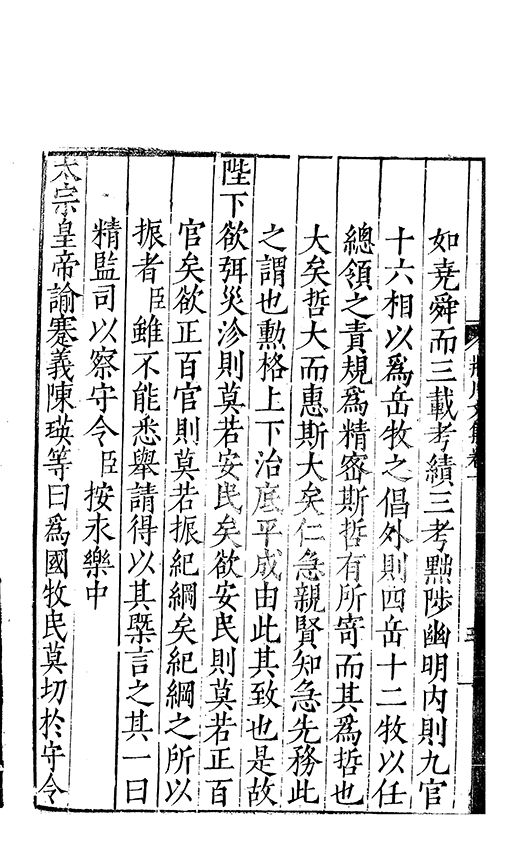 如堯舜而三載考績三考黜陟幽明內則九官
十六相以爲岳牧之倡外則四岳十二牧以任
總領之責規爲精密斯哲有所寄而其爲哲也
大矣哲大而惠斯大矣仁急親賢知急先務此
之謂也勳格上下治底平成由此其致也是故
陛下欲弭災沴則莫若安民矣欲安民則莫若正百
官矣欲正百官則莫若振紀綱矣紀綱之所以
振者臣雖不能悉舉請得以其槩言之其一曰
精監司以察守令臣按永樂中
太宗皇帝諭蹇義陳瑛等曰爲國牧民莫切於守令